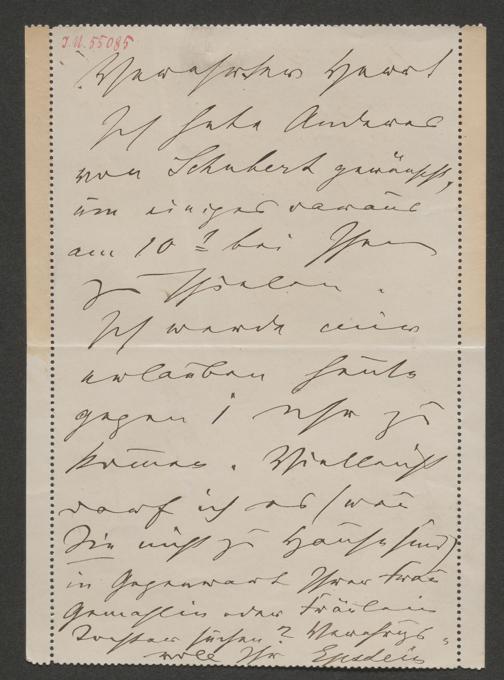 I.N. 55085
Verehrter Herr!
Ich habe Anderes
von Schubert gewünscht,
um einiges daraus
am 10 t bei Ihnen
zu spielen.
Ich werde mir
erlauben heute
gegen 1 Uhr zu
kommen. Vielleicht
darf ich es (wenn
Sie nicht zu Hause sind)
in Gegenwart Ihrer Frau
Gemahlin oder Fräulein
Tochter suchen? Verehrungs-
voll Ihr Epstein